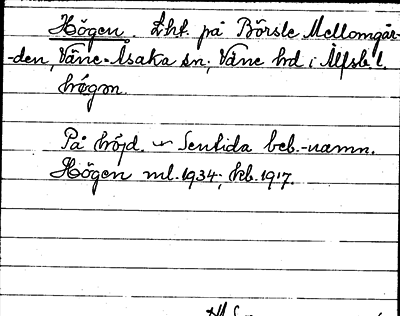 Högen. Lht. på Börsle Mellomgår-
-den, Väne-Åsaka sn; Väne hd i Älfsb. l.
högɷn.
På höjd. ~ Sentida beb.-namn.
Högen ml. 1934; kb. 1917.